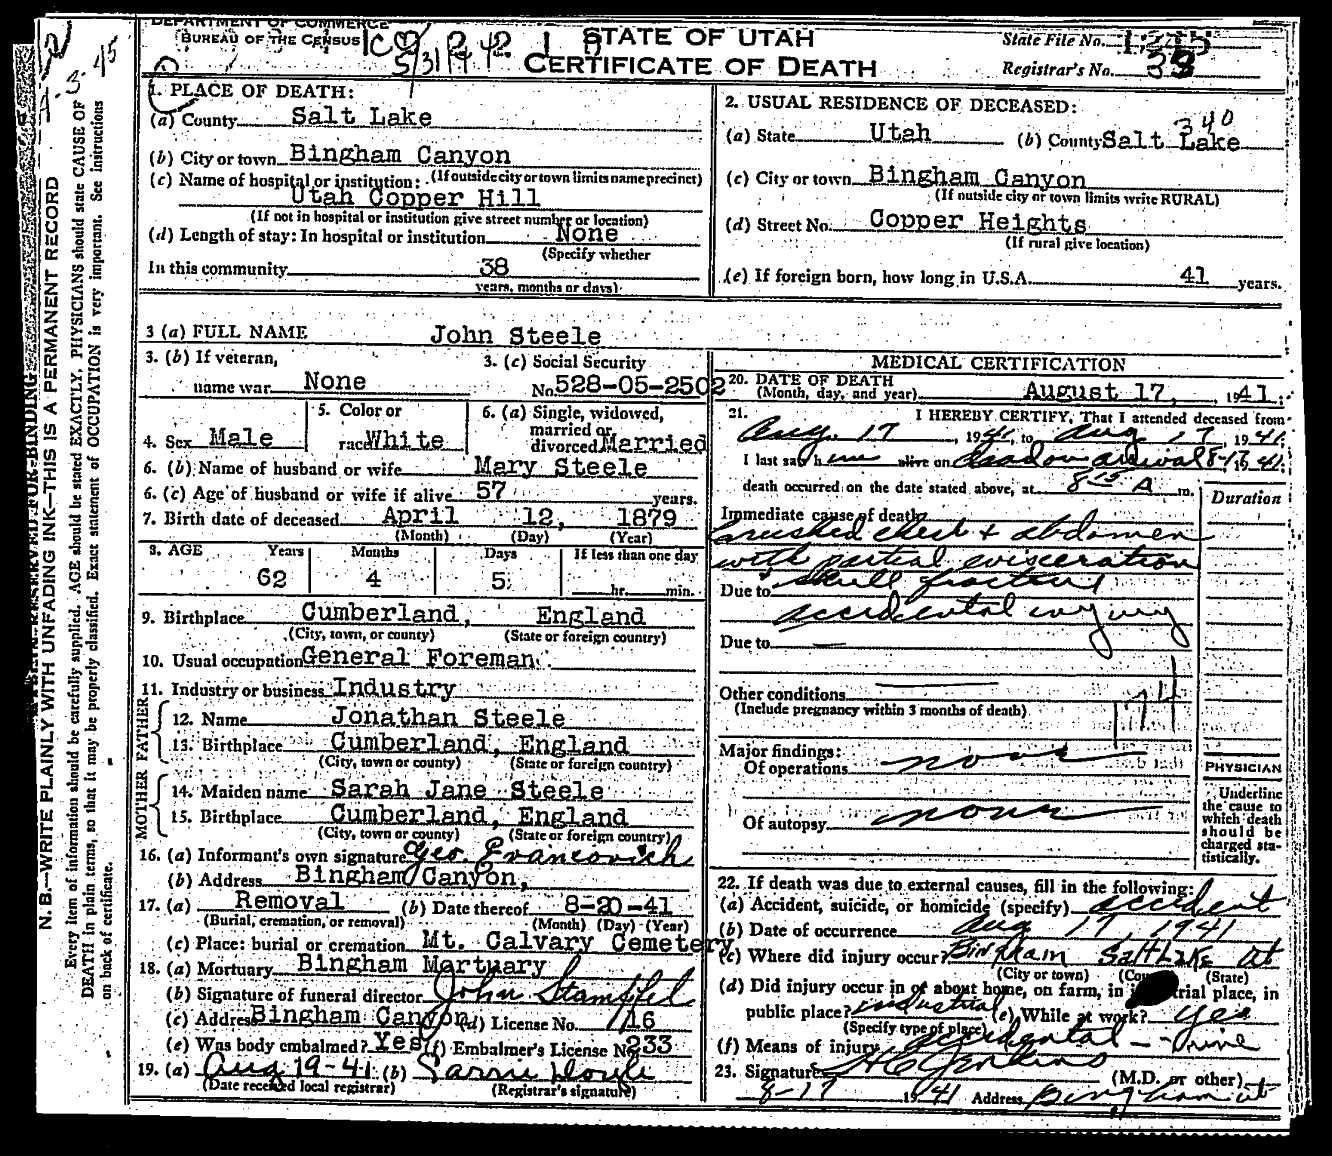 DEPARTMENT OF COMMERCE
BUREAU OF THE CENSUS
STATE OF UTAH
CERTIFICATE OF DEATH
State File No.
Registrar's No. 39
1. PLACE OF DEATH:
(a) County Salt Lake
(b) City or town Bingham Canyon
(If outside city or town limits name precinct)
(c) Name of hospital or institution:
Utah Copper Hill
(If not in hospital or institution give street number or location)
(d) Length of stay: In hospital or institution None
(Specify whether
In this community 38
years, months or days)
2. USUAL RESIDENCE OF DECEASED:
340
(a) State Utah (b) County Salt Lake
(c) City or town Bingham Canyon
(If outside city or town limits write RURAL)
(d) Street No. Copper Heights
(If rural give location)
(e) If foreign born, how long in U.S.A. 41 years.
3 (a) FULL NAME John Steele
3. (b) If veteran, name war None
3. (c) Social Security No. 528-05-2502
4. Sex Male
5. Color or race White
6. (a) Single, widowed, married or divorced Married
6. (b) Name of husband or wife Mary Steele
6. (c) Age of husband or wife if alive 57 years.
7. Birth date of deceased April 12, 1879
(Month) (Day) (Year)
8. AGE Years Months Days If less than one day
62 4 5 hr. min.
9. Birthplace Cumberland, England
(City, town, or county) (State or foreign country)
10. Usual occupation General Foreman
11. Industry or business Industry
FATHER
12. Name Jonathan Steele
13. Birthplace Cumberland, England
(City, town or county) (State or foreign country)
MOTHER
14. Maiden name Sarah Jane Steele
15. Birthplace Cumberland, England
(City, town or county) (State or foreign country)
16. (a) Informant's own signature Geo. Francovich
(b) Address Bingham Canyon,
17. (a) Removal (b) Date thereof 8-20-41
(Burial, cremation, or removal) (Month) (Day) (Year)
(c) Place: burial or cremation Mt. Calvary Cemetery
18. (a) Mortuary Bingham Mortuary
(b) Signature of funeral director John Stampfel
(c) Address Bingham Canyon (d) License No. 116
(e) Was body embalmed? Yes (f) Embalmer's License No. 233
19. (a) Aug 19-41 (b)
(Date received local registrar) (Registrar's signature)
MEDICAL CERTIFICATION
20. DATE OF DEATH
(Month, day, and year) August 17, 1941.
21. I HEREBY CERTIFY, That I attended deceased from
Aug. 17, 1941, to Aug 17, 1941.
I last saw him alive on dead on arrival 8-17 1941.
death occurred on the date stated above, at 8 15 A m.
Duration
Immediate cause of death
Crushed chest + abdomen
with partial evisceration
Due to skull fracture
accidental injury
Due to
Other conditions
(Include pregnancy within 3 months of death)
174
Major findings:
Of operations none
Of autopsy none
PHYSICIAN
Underline the cause to which death should be charged statistically.
22. If death was due to external causes, fill in the following:
(a) Accident, suicide, or homicide (specify) accident
(b) Date of occurrence Aug 17, 1941
(c) Where did injury occur? Bingham Salt Lake Ut
(City or town) (State)
(d) Did injury occur in or about home, on farm, in industrial place, in
public place? industrial (e) While at work? yes
(Specify type of place)
(f) Means of injury accidental - - Mine
23. Signature H C Jenkins (M.D. or other)
8-17 1941 Address Bingham Ut
N. B.—WRITE PLAINLY WITH UNFADING INK—THIS IS A PERMANENT RECORD
Every item of information should be carefully supplied. AGE should be stated EXACTLY. PHYSICIANS should state CAUSE OF
DEATH in plain terms, so that it may be properly classified. Exact statement of OCCUPATION is very important. See instructions
on back of certificate.